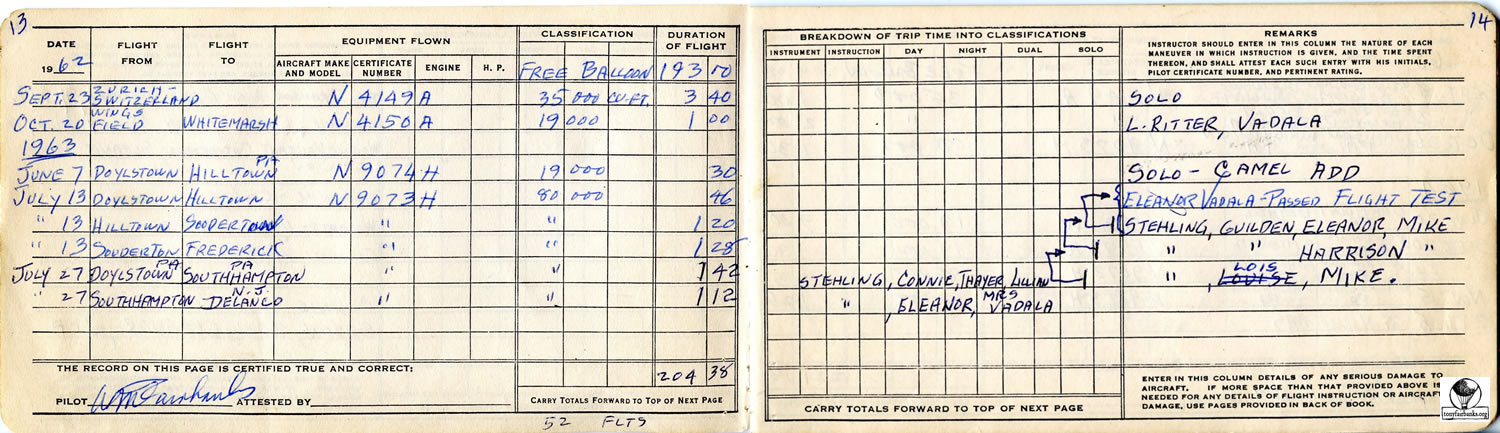 13
DATE
1962
FLIGHT FROM
FLIGHT TO
EQUIPMENT FLOWN
AIRCRAFT MAKE AND MODEL
CERTIFICATE NUMBER
ENGINE
H. P.
CLASSIFICATION
FREE BALLOON
DURATION OF FLIGHT
193 70
SEPT. 23 ZURICH- SWITZERLAND N 4149A 35 000 CU.FT. 3 40
OCT. 20 WINGS FIELD WHITEMARSH N 4150A 19 000 1 00
1963
JUNE 7 DOYLSTOWN HILLTOWN PA N 9074H 19 000 30
JULY 13 DOYLSTOWN HILLTOWN N 9073H 80 000 46
" 13 HILLTOWN SOUDERTOWN " 1 20
" 13 SOUDERTON FREDERICK " " 1 28
JULY 27 DOYLSTOWN PA SOUTHHAMPTON PA " " 1 42
" 27 SOUTHHAMPTON DELANCO N.J. " " 1 12
THE RECORD ON THIS PAGE IS CERTIFIED TRUE AND CORRECT:
204 38
PILOT Wm Fairbanks ATTESTED BY
CARRY TOTALS FORWARD TO TOP OF NEXT PAGE
52 FLTS
14
BREAKDOWN OF TRIP TIME INTO CLASSIFICATIONS
INSTRUMENT INSTRUCTION DAY NIGHT DUAL SOLO
REMARKS
INSTRUCTOR SHOULD ENTER IN THIS COLUMN THE NATURE OF EACH
MANEUVER IN WHICH INSTRUCTION IS GIVEN, AND THE TIME SPENT
THEREON, AND SHALL ATTEST EACH SUCH ENTRY WITH HIS INITIALS,
PILOT CERTIFICATE NUMBER, AND PERTINENT RATING.
SOLO
L. RITTER, VADALA
SOLO - CAMEL ADD
ELEANOR VADALA - PASSED FLIGHT TEST
STEHLING, GUILDEN, ELEANOR, MIKE
" " HARRISON "
STEHLING, CONNIE, THAYER, LILLIAN
" , LOUISE LOIS, MIKE.
" , ELEANOR, MRS VADALA
ENTER IN THIS COLUMN DETAILS OF ANY SERIOUS DAMAGE TO
AIRCRAFT. IF MORE SPACE THAN THAT PROVIDED ABOVE IS
NEEDED FOR ANY DETAILS OF FLIGHT INSTRUCTION OR AIRCRAFT
DAMAGE, USE PAGES PROVIDED IN BACK OF BOOK.
CARRY TOTALS FORWARD TO TOP OF NEXT PAGE
tonyfairbanks.org